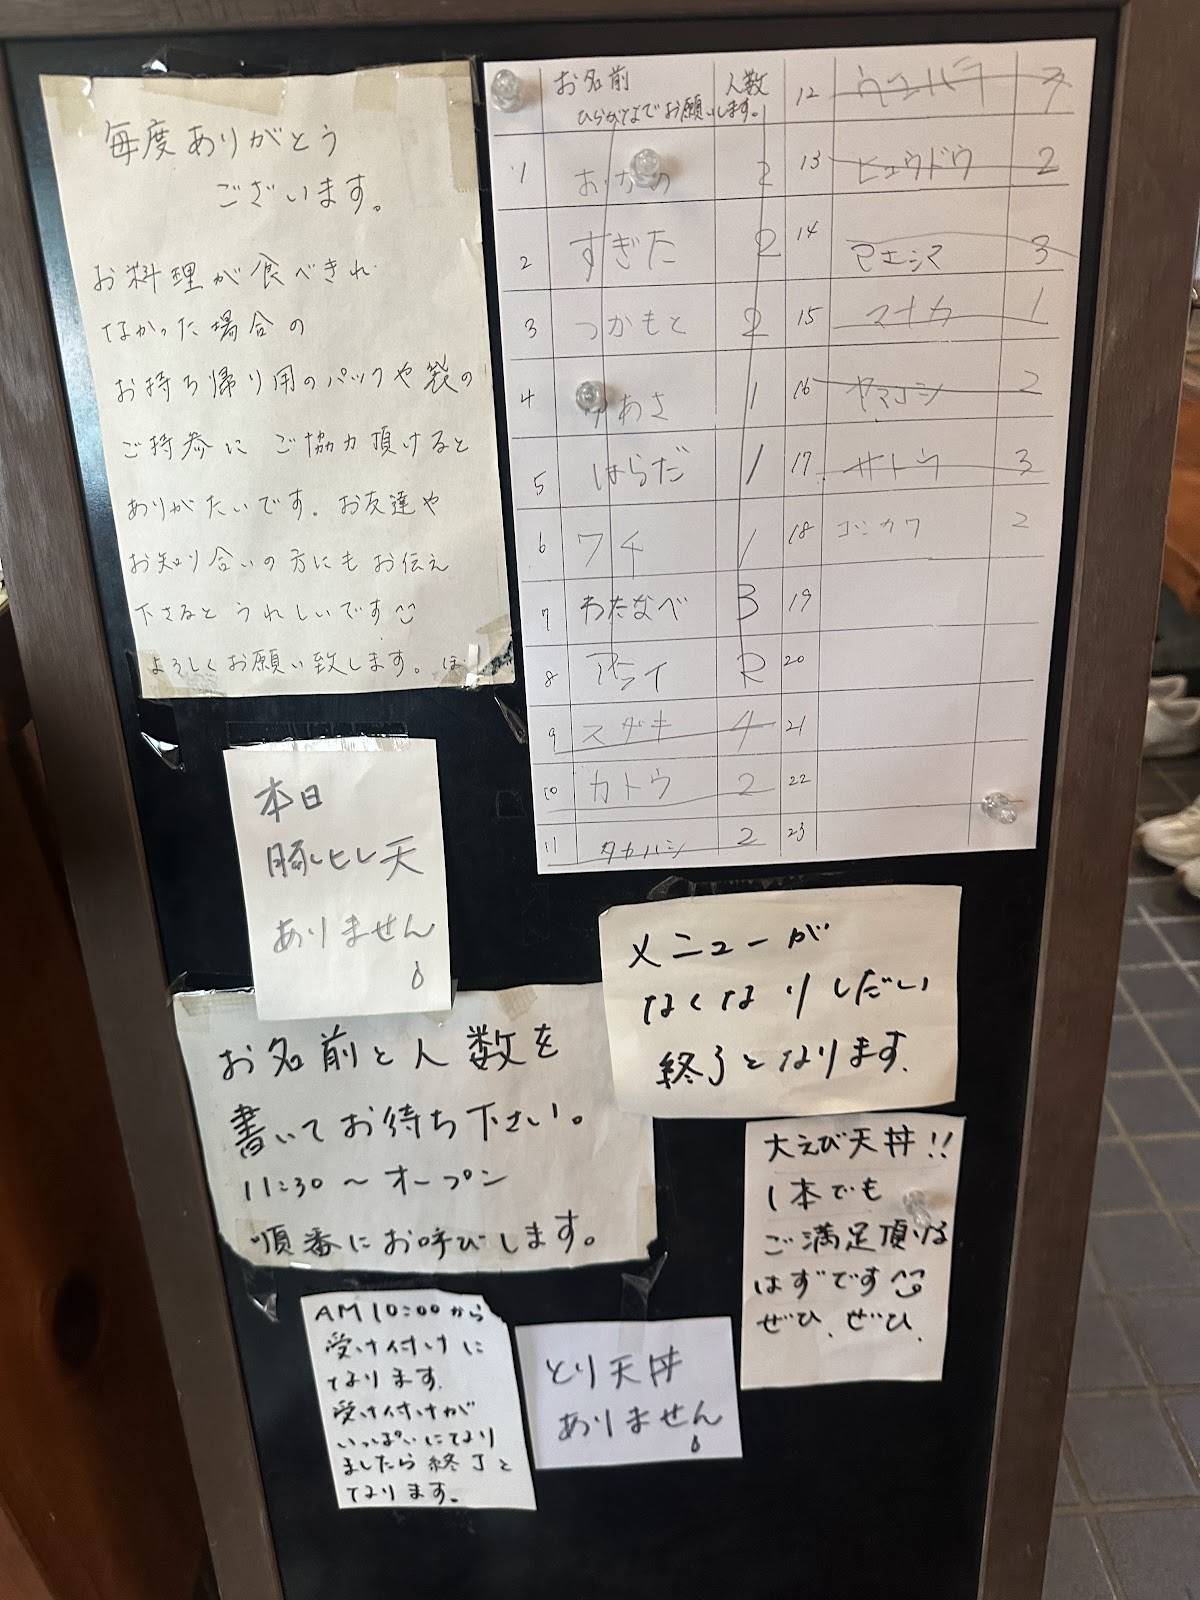 毎度ありがとう
ございます。
お料理が食べきれ
なかった場合の
お持ち帰り用のパックや袋の
ご持参に ご協力頂けると
ありがたいです。お友達や
お知り合いの方にもお伝え
下さるとうれしいです
よろしくお願い致します。ほ
お名前 人数
ひらがなでお願いします。
1 2
2 すぎた 2
3 つかもと 2
4 ゆあさ 1
5 はらだ 1
6 ワチ 1
7 わたなべ 3
8 アライ 2
9 スザキ 4
10 カトウ 2
11 タカハシ 2
12
13 ヒョウドウ 2
14 マエシマ 3
15 マナカ 1
16 ヤマコシ 2
17 サトウ 3
18 コシカワ 2
19
20
21
22
23
本日
豚ヒレ天
ありません
メニューが
なくなりしだい
終了となります。
お名前と人数を
書いてお待ち下さい。
11:30〜オープン
順番にお呼びします。
大えび天丼!!
1本でも
ご満足頂ける
はずです
ぜひ、ぜひ、
AM10:00から
受け付けに
なります。
受け付けが
いっぱいになり
ましたら終了と
なります。
とり天丼
ありません